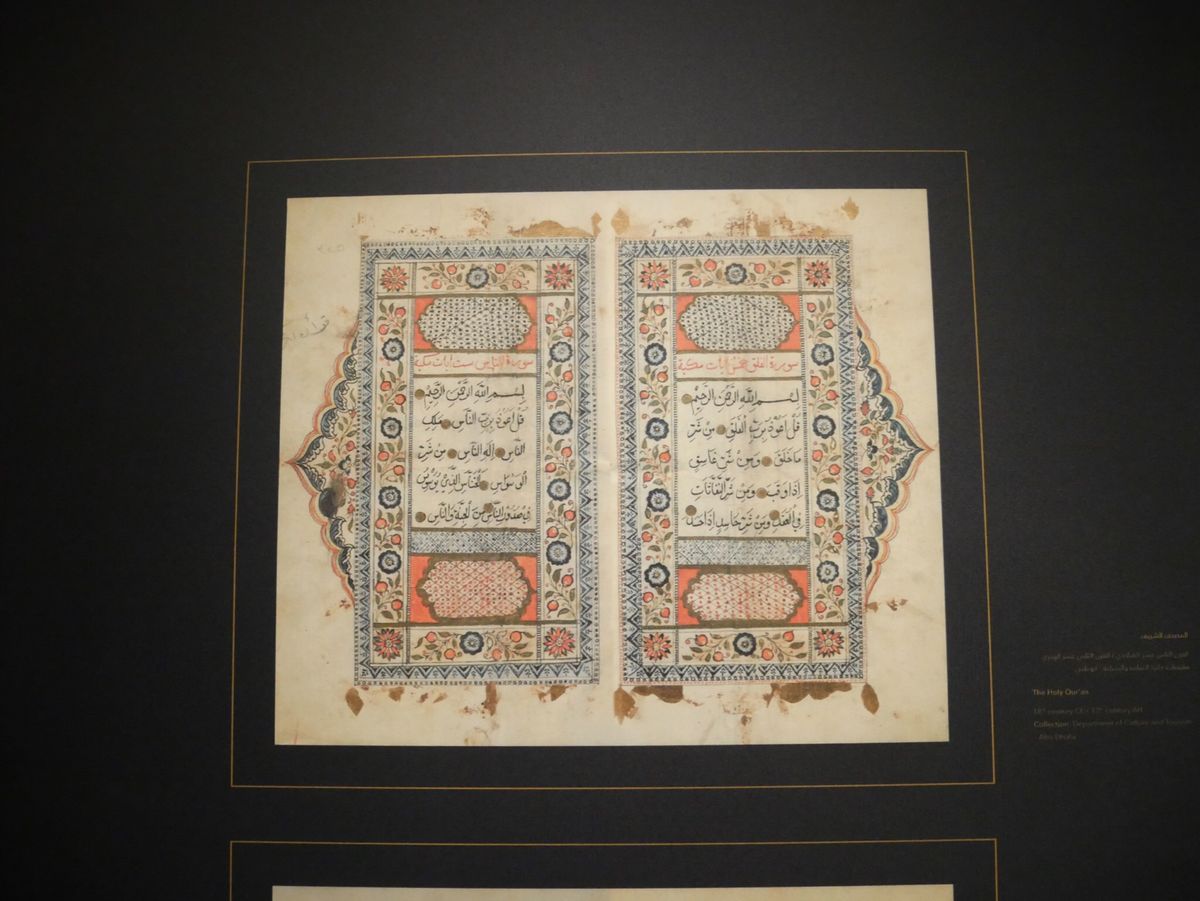 سورة الفلق خمس آيات مكية
بسم الله الرحمن الرحيم
قل اعوذ برب الفلق من شر
ما خلق ومن شر غاسق
اذا وقب ومن شر النفاثات
في العقد ومن شر حاسد اذا حسد
سورة الناس ست آيات مكية
بسم الله الرحمن الرحيم
قل اعوذ برب الناس ملك
الناس اله الناس من شر
الوسواس الخناس الذي يوسوس
في صدور الناس من الجنة والناس
المصحف الشريف
القرن الثامن عشر الميلادي / القرن الثاني عشر الهجري
The Holy Qur'an
18th century CE / 12th century AH
Collection: Department of Culture and Tourism
Abu Dhabi